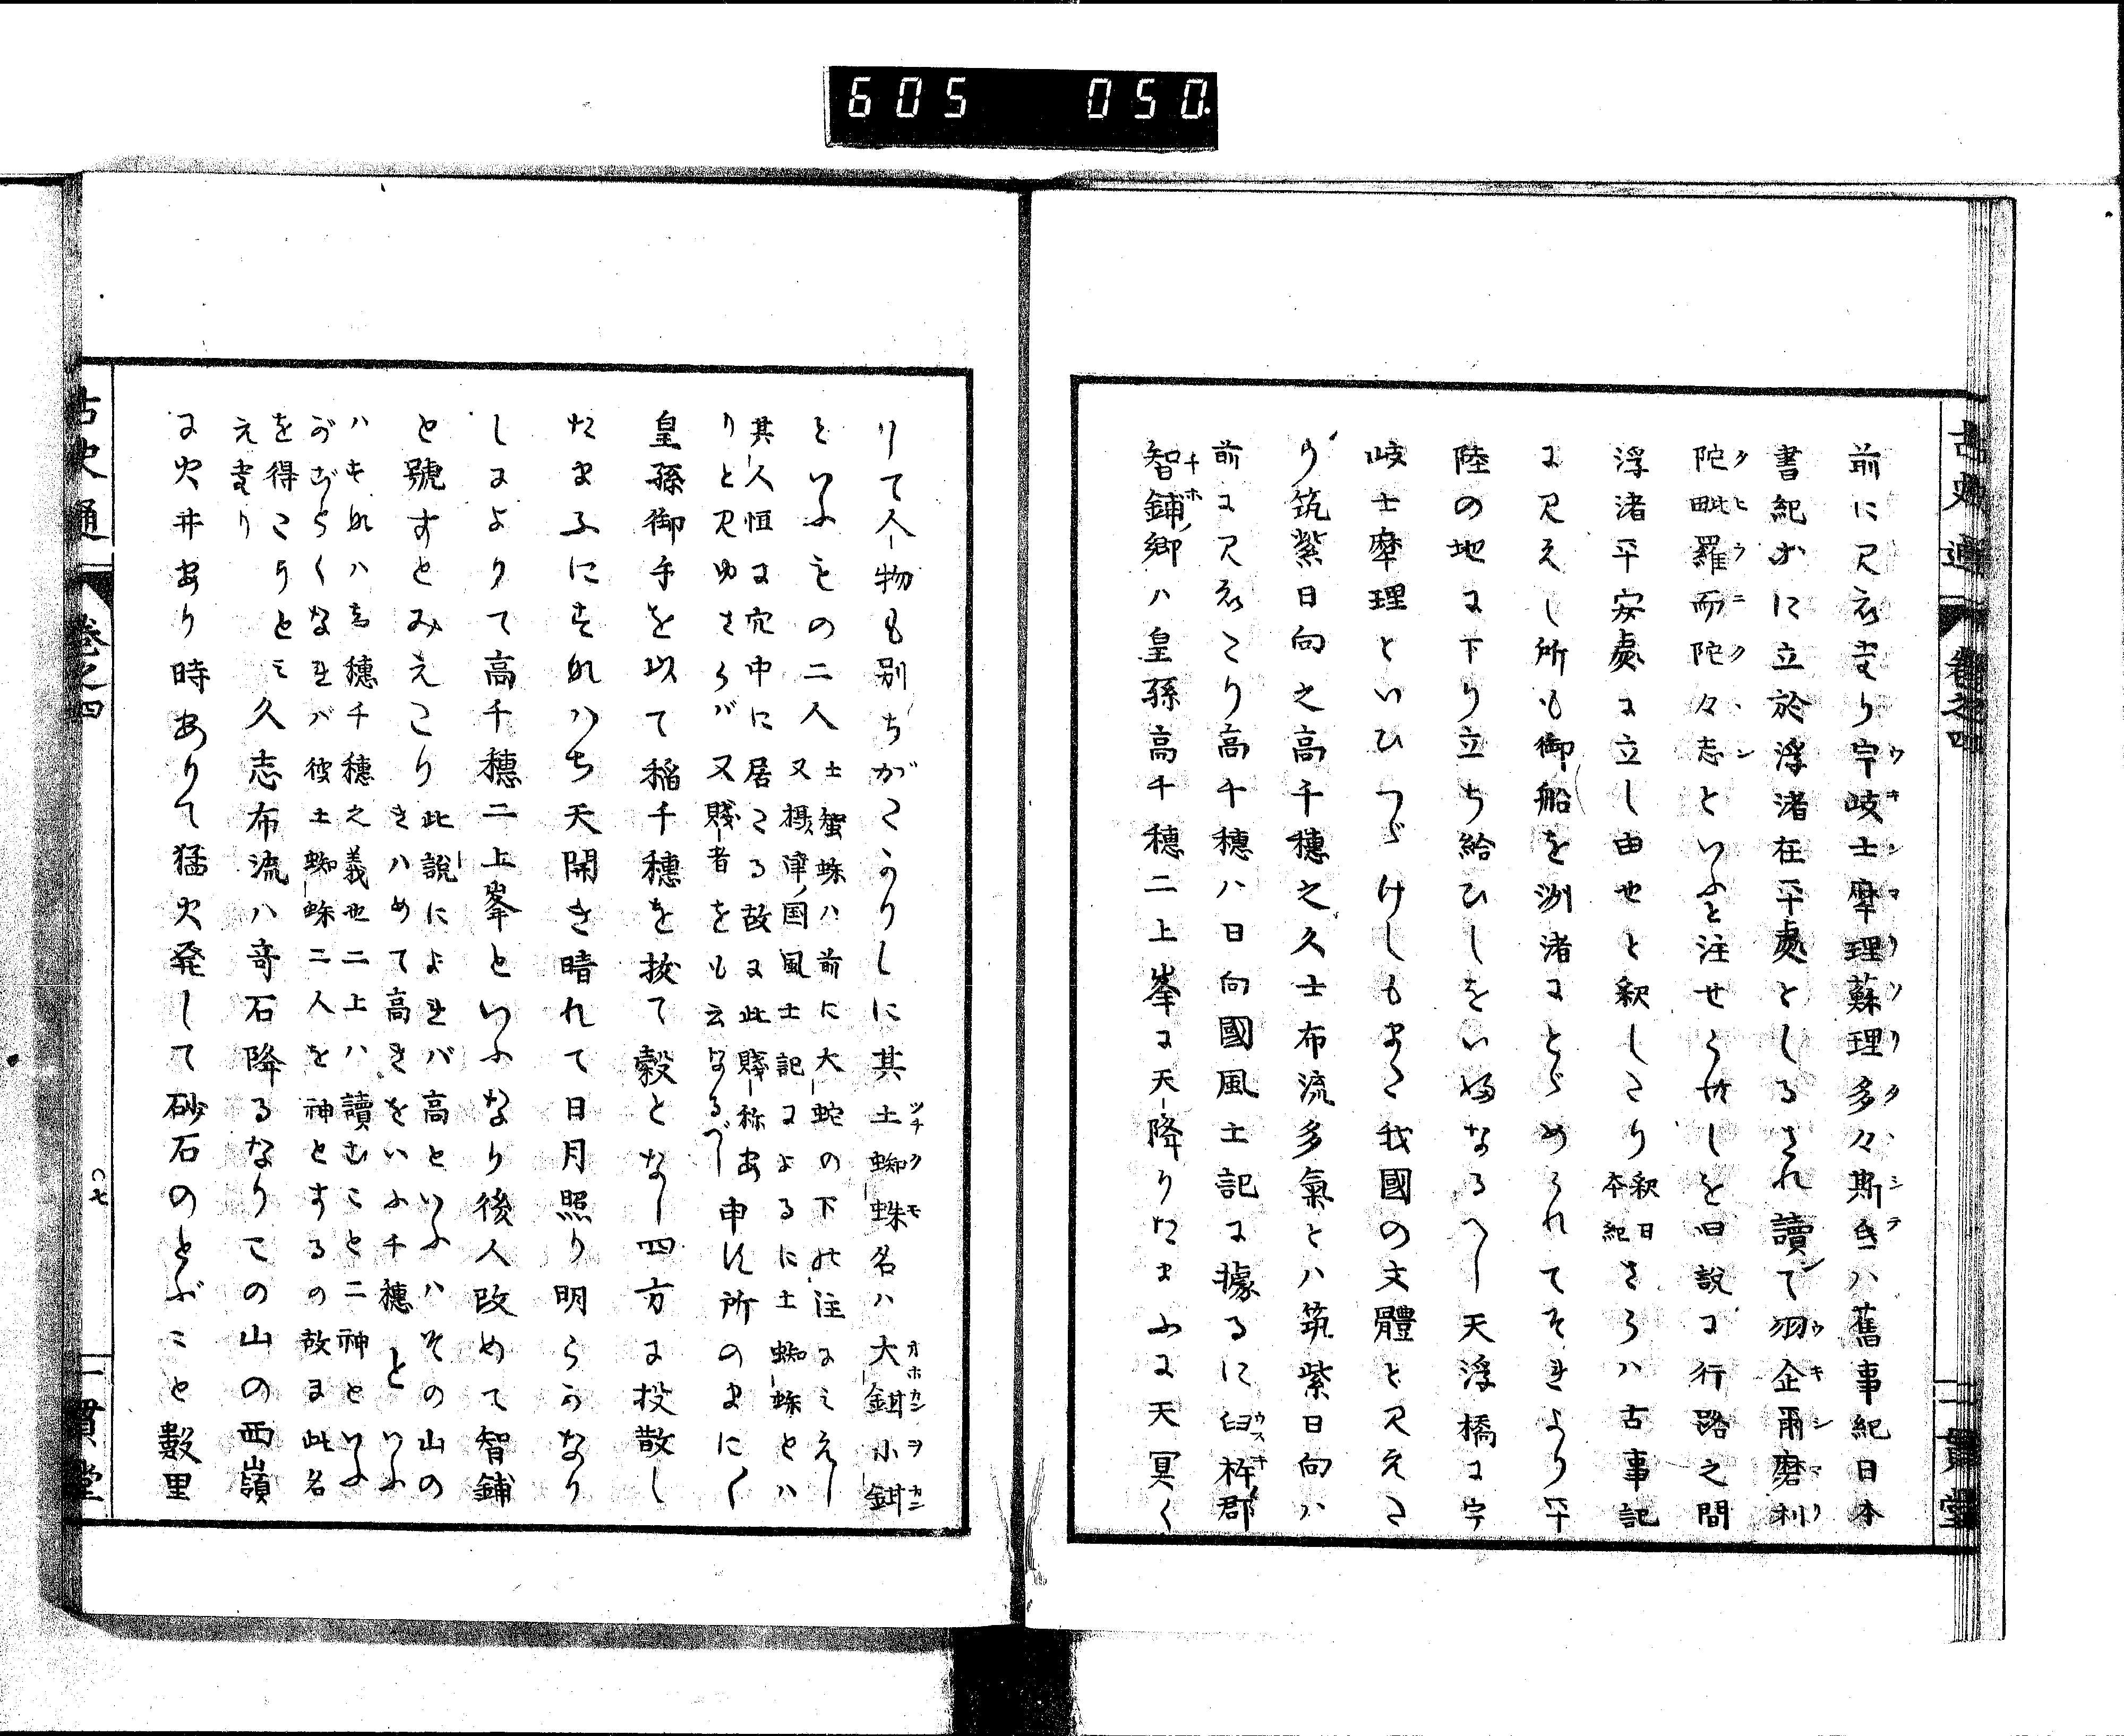 605 050
古史通 卷之四 一貫堂
前に見えたり宇岐士摩理蘇理多々斯弖ハ舊事紀日本
書紀等に立於浮渚在平處としるされ讀て羽企爾磨利
陀毗羅而陀々志といふと注せられしを旧説に行路之間
浮渚平安處に立し由也と釈したり釈日本紀さらハ古事記
に見えし所も御船を洲渚にとゞめられてそれより平
陸の地に下り立ち給ひしをいふなるへし天浮橋に宇
岐士摩理といひつゞけしもまた我國の文體と見えた
り筑紫日向之高千穗之久士布流多氣とハ筑紫日向ハ
前に見えたり高千穗ハ日向國風土記に據るに臼杵郡
智鋪郷ハ皇孫高千穗二上峯に天降りたまふに天冥く
りて人物も別ちがたかりしに其土蜘蛛名ハ大鉗小鉗
といふものの二人
土蜘蛛ハ前に大蛇の下の注にみえし
又摂津国風土記によるに土蜘蛛とハ
其人恒に穴中に居たる故に此賤称あ
りと見ゆさらバ又賤者をも云なるべし
申す所のまにく
皇孫御手を以て稲千穗を抜て穀となし四方に投散し
たまふにすなハち天開き晴れて日月照り明らかなり
しによりて高千穗二上峯といふなり後人改めて智鋪
と號すとみえたり
此説によれバ高といふハその山の
きハめて高きをいふ千穗といふ
ハすなハち穗千穗之義也二上ハ讀むこと二神といふ
がごとくなれバ彼土蜘蛛二人を神とするの故に此名
を得たりとみ
えたり
久志布流ハ奇石降るなりこの山の西嶺
に火井あり時ありて猛火発して砂石のとぶこと數里
古史通 卷之四 〇七 一貫堂